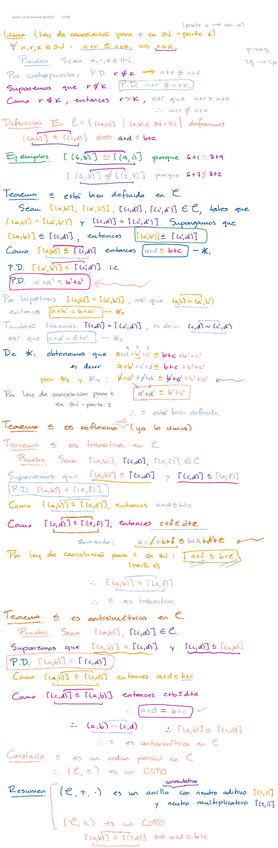 lunes, 13 de octubre de 2025 17:03
(parte 2 → con ≤)
Lema (Ley de cancelación para + en ℕ - parte 2)
∀ n, r, k ∈ ℕ. n+r ≤ n+k ⟹ r ≤ k
Prueba: Sean n, r, k ∈ ℕ.
Por contrapuesta: P.D. r ≰ k ⟹ n+r ≰ n+k
Supongamos que r ≰ k. P.D. n+r ≰ n+k
Como r ≰ k, entonces r > k, así que n+r > n+k
∴ n+r ≰ n+k
Definición En ℤ = { [(a,b)] | (a,b) ∈ ℕ×ℕ } definimos
[(a,b)] ≤ [(c,d)] ⟺ a+d ≤ b+c
Ejemplos
Teorema ≤ está bien definido en ℤ.
Sean [(a,b)], [(a',b')], [(c,d)], [(c',d')] ∈ ℤ, tales que
[(a,b)] = [(a',b')] y [(c,d)] = [(c',d')]. Supongamos que
[(a,b)] ≤ [(c,d)], entonces [(a',b')] ≤ [(c',d')]
Como [(a,b)] ≤ [(c,d)] entonces a+d ≤ b+c
P.D. [(a',b')] ≤ [(c',d')] i.e.
P.D. a'+d' ≤ b'+c'
Por hipótesis [(a,b)] = [(a',b')], así que (a,b) ~ (a',b')
entonces a+b' = b+a'
También tenemos [(c,d)] = [(c',d')], es decir (c,d) ~ (c',d')
así que c+d' = d+c'
De *, obtenemos que a+d+b'+c' ≤ b+c+b'+c'
es decir
Por ley de cancelación para + en ℕ - parte 2
a'+d' ≤ b'+c'
∴ ≤ está bien definida.
Teorema ≤ es reflexiva (ya lo vimos)
Teorema ≤ es transitiva en ℤ
Prueba Sean [(a,b)], [(c,d)], [(e,f)] ∈ ℤ.
Supongamos que [(a,b)] ≤ [(c,d)] y [(c,d)] ≤ [(e,f)]
P.D. [(a,b)] ≤ [(e,f)].
Como [(a,b)] ≤ [(c,d)], entonces a+d ≤ b+c
Como [(c,d)] ≤ [(e,f)], entonces c+f ≤ d+e
Sumando:
Por Ley de cancelación para + en ℕ: a+f ≤ b+e
(parte 2)
∴ [(a,b)] ≤ [(e,f)]
∴ ≤ es transitiva
Teorema ≤ es antisimétrica en ℤ
Prueba: Sean [(a,b)], [(c,d)] ∈ ℤ.
Supongamos que [(a,b)] ≤ [(c,d)] y [(c,d)] ≤ [(a,b)]
P.D. [(a,b)] = [(c,d)]
Como [(a,b)] ≤ [(c,d)] entonces a+d ≤ b+c
Como [(c,d)] ≤ [(a,b)] entonces c+b ≤ d+a
∴ a+d = b+c
∴ (a,b) ~ (c,d) ∴ [(a,b)] = [(c,d)]
∴ ≤ es antisimétrica en ℤ
Corolario ≤ es un orden parcial en ℤ
∴ (ℤ, ≤) es un COPO
conmutativo
Resumen: (ℤ, +, ·) es un anillo con neutro aditivo [(1,1)]
y neutro multiplicativo [(2,1)]
(ℤ, ≤) es un COPO
[(a,b)] ≤ [(c,d)] ⟺ a+d ≤ b+c